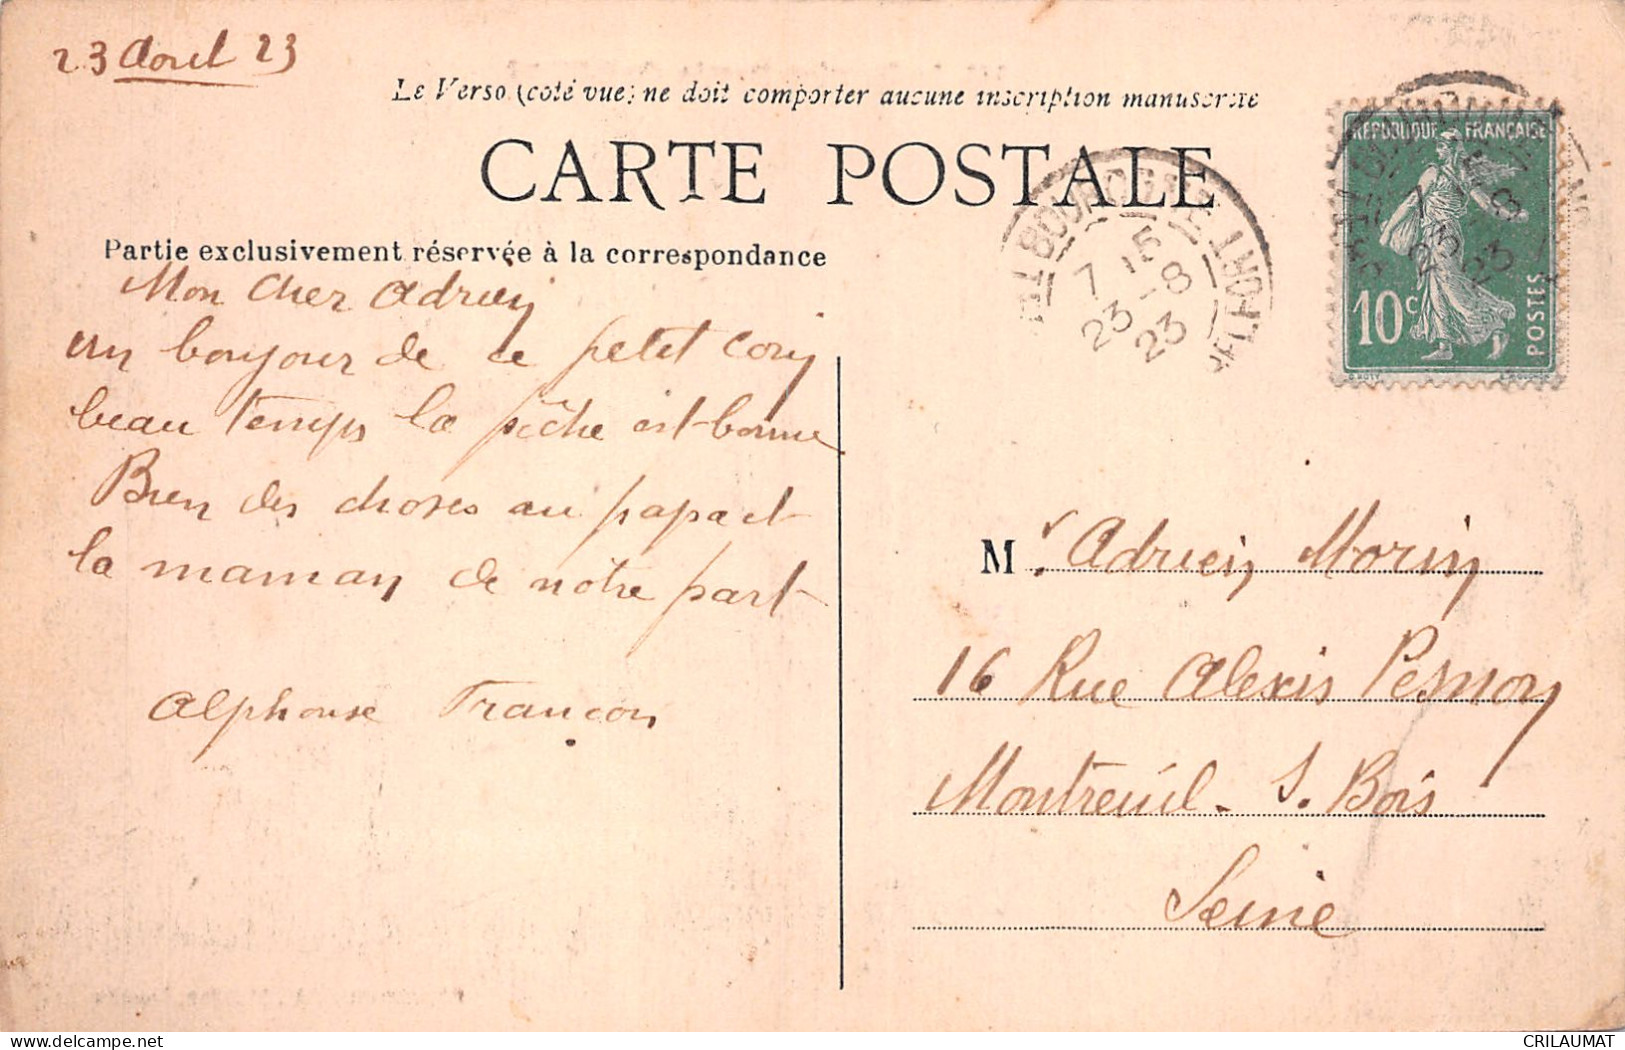 23 Aout 23
Le Verso (coté vue) ne doit comporter aucune inscription manuscrite
CARTE POSTALE
Partie exclusivement réservée à la correspondance
Mon Cher Adrien
un bonjour de ce petit coin
beau temps la pêche est bonne
Bien des choses au papa et
la maman de notre part
Alphonse Françon
7 15
23-8
23
REPUBLIQUE FRANÇAISE
10c
POSTES
Mr Adrien Morin
16 Rue Alexis Pesnon
Montreuil. S. Bois
Seine
delcampe.net
CRILAUMAT